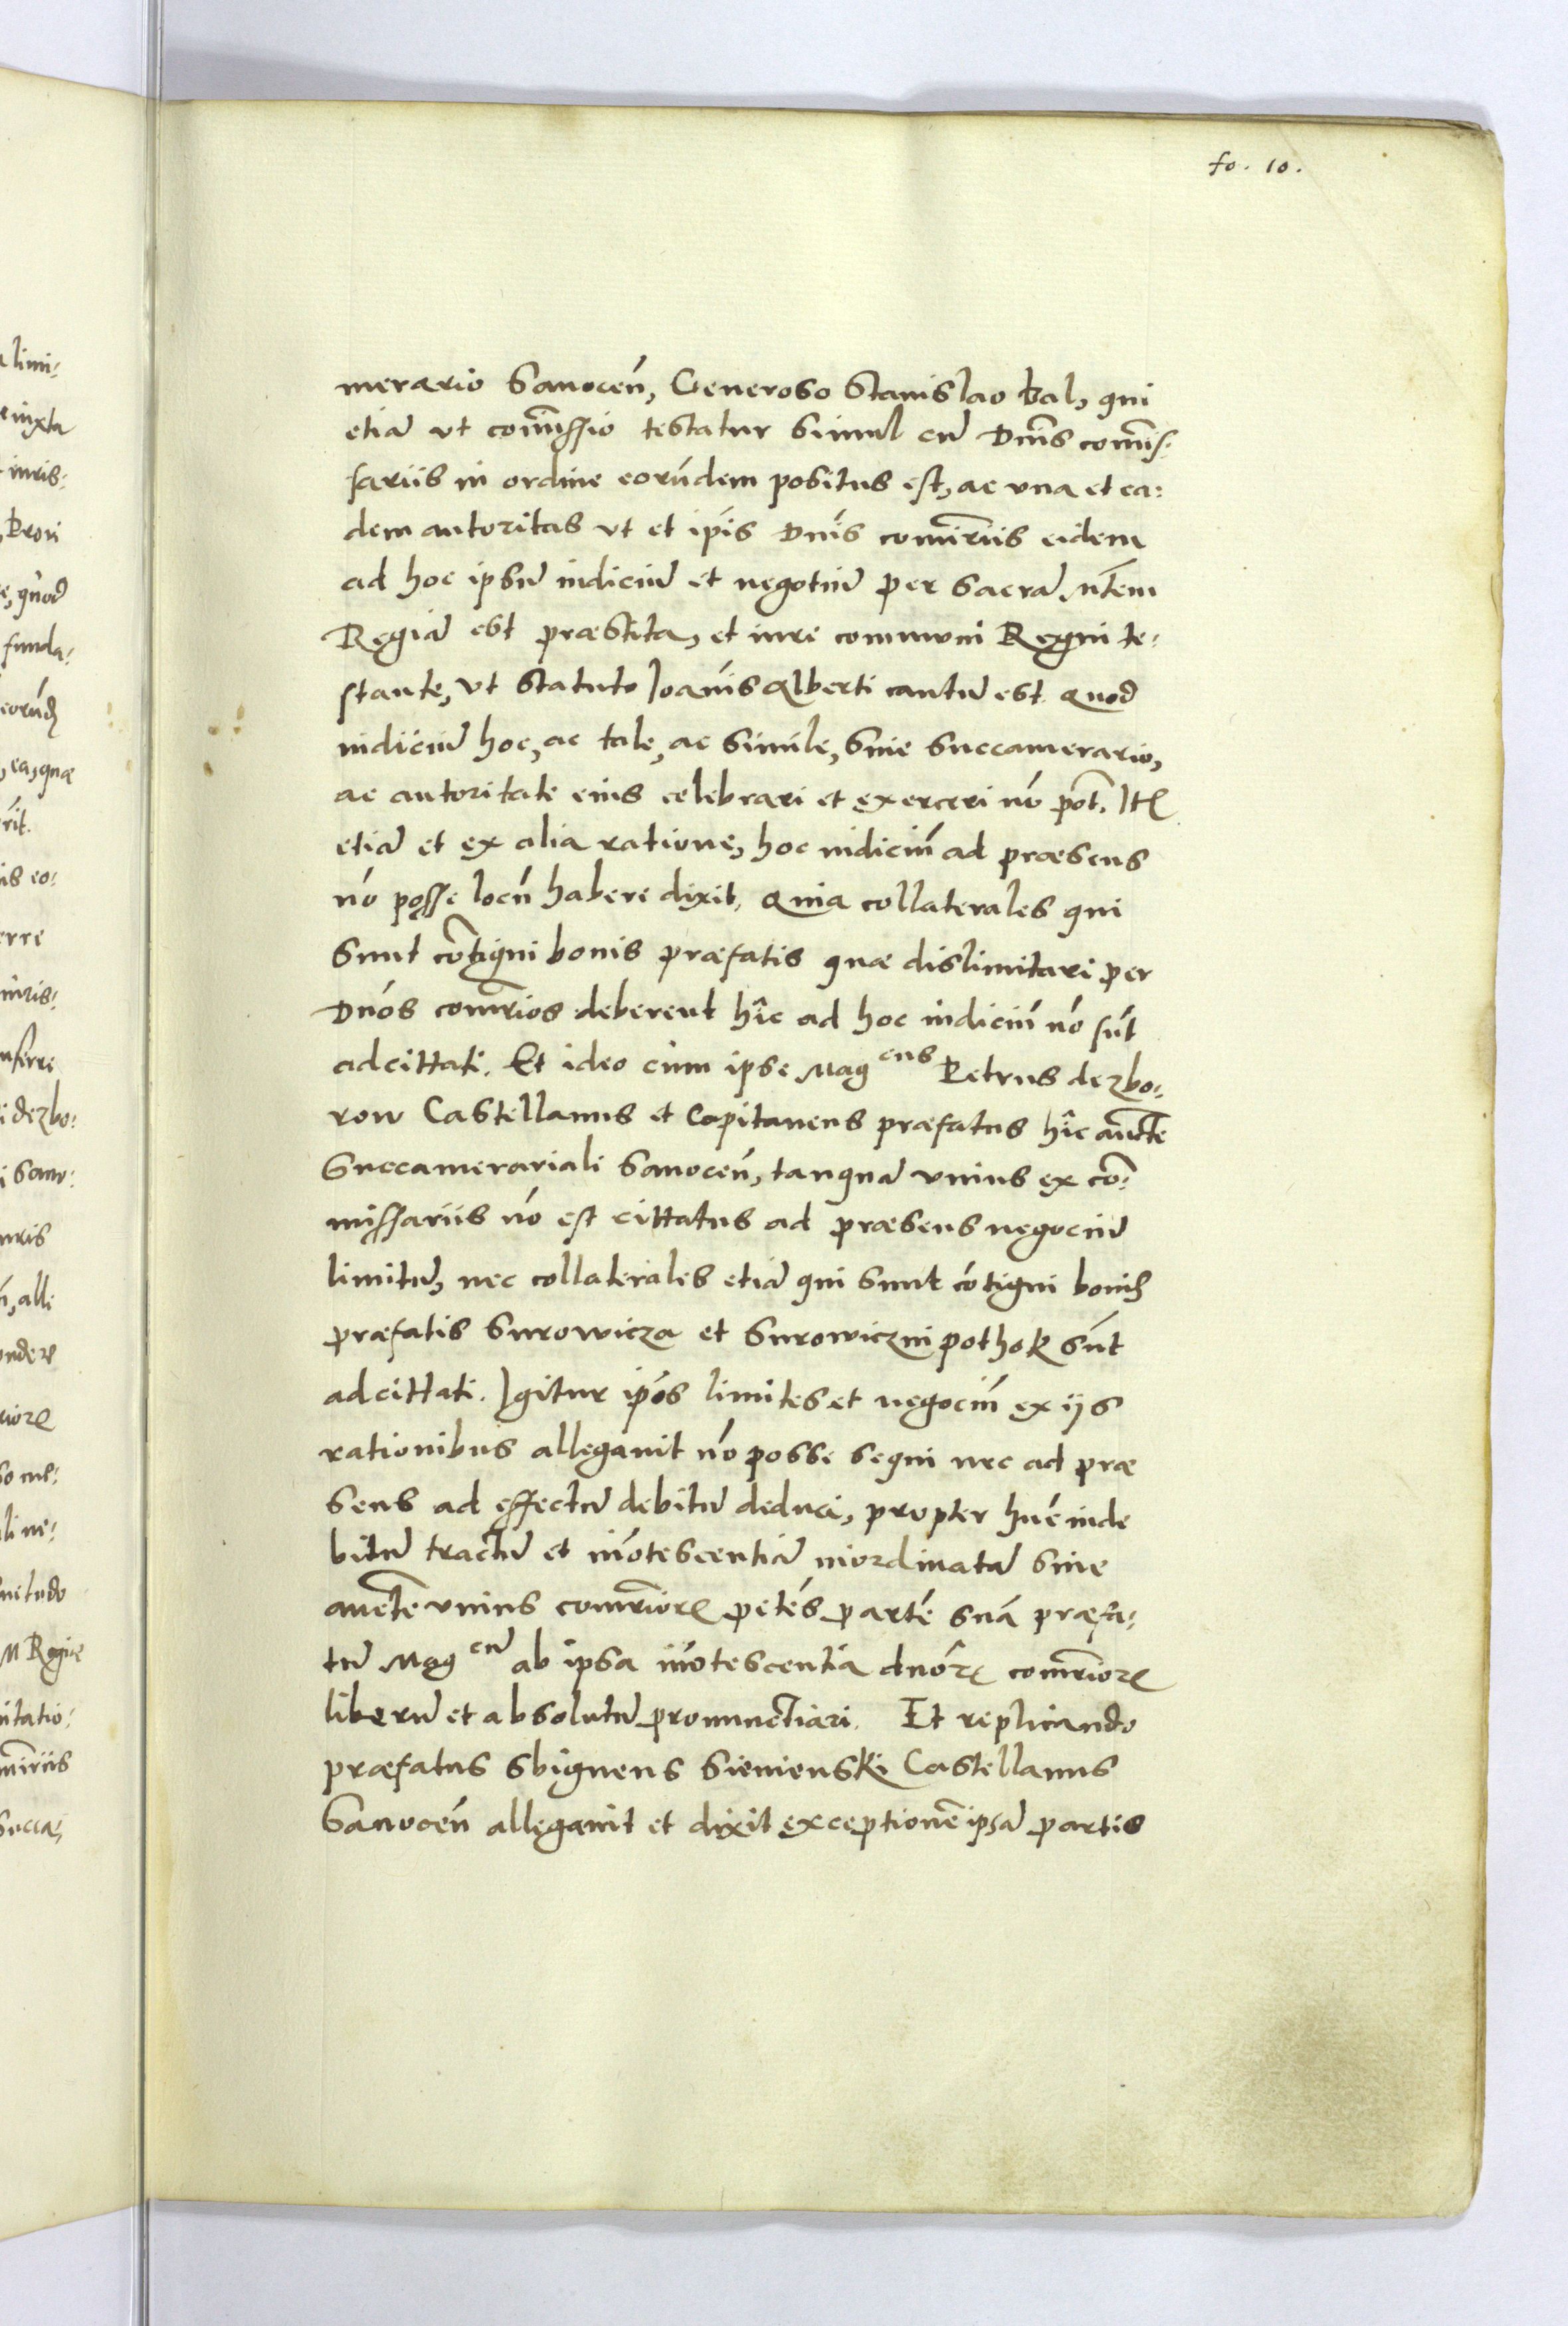 fo. 10.
merario Sanoceñ, Generoso Stanislao Bal, qui
etiã vt com̃issio testatur simul cũ Dñis com̃is-
sariis in ordine eorũdem positus est, ac vna et ea-
dem autoritas vt et ip̃is Dñis com̃riis eidem
ad hoc ipsũ iudiciũ et negotiũ per Sacrã M̃tem
Regiã est præstita, et iure communi Regni te-
stante, vt statuto Joañis Alberti cautũ est. Quod
iudiciũ hoc, ac tale, ac simile, sine Succamerario,
ac autoritate eius celebrari et exerceri nõ põt. Itẽ
etiã et ex alia ratione, hoc iudiciũ ad præsens
nõ posse locũ habere dixit, Quia collaterales qui
sunt cõtigui bonis præfatis quæ dislimitari per
Dños com̃rios deberent hîc ad hoc iudiciũ nõ sũt
adcittati. Et ideo cum ipse Mag cus Petrus de Zbo-
row Castellanus et Capitaneus præfatus hîc auctẽ
Succamerariali Sanoceñ, tanquã vnius ex cõ-
missariis nõ est cittatus ad præsens negociũ
limitũ, nec collaterales etiã qui sunt cõtigui bonis
præfatis Surowicza et Surowiczni pothok sũt
adcittati. Igitur ip̃os limites et negociũ ex ijs
rationibus allegauit nõ posse sequi nec ad præ
sens ad effectũ debitũ deduci, propter hũc inde
bitũ tractũ et iñotescentiã inordinatã sine
auctẽ vnius com̃riorꝝ petẽs partẽ suã præfa-
tũ Mag cũ ab ipsa iñotescentia dnõrꝝ com̃riorꝝ
liberũ et absolutũ pronunctiari. Et replicando
præfatus Sbigneus Sienienski Castellanus
Sanoceñ allegauit et dixit exceptionẽ ipsã partis